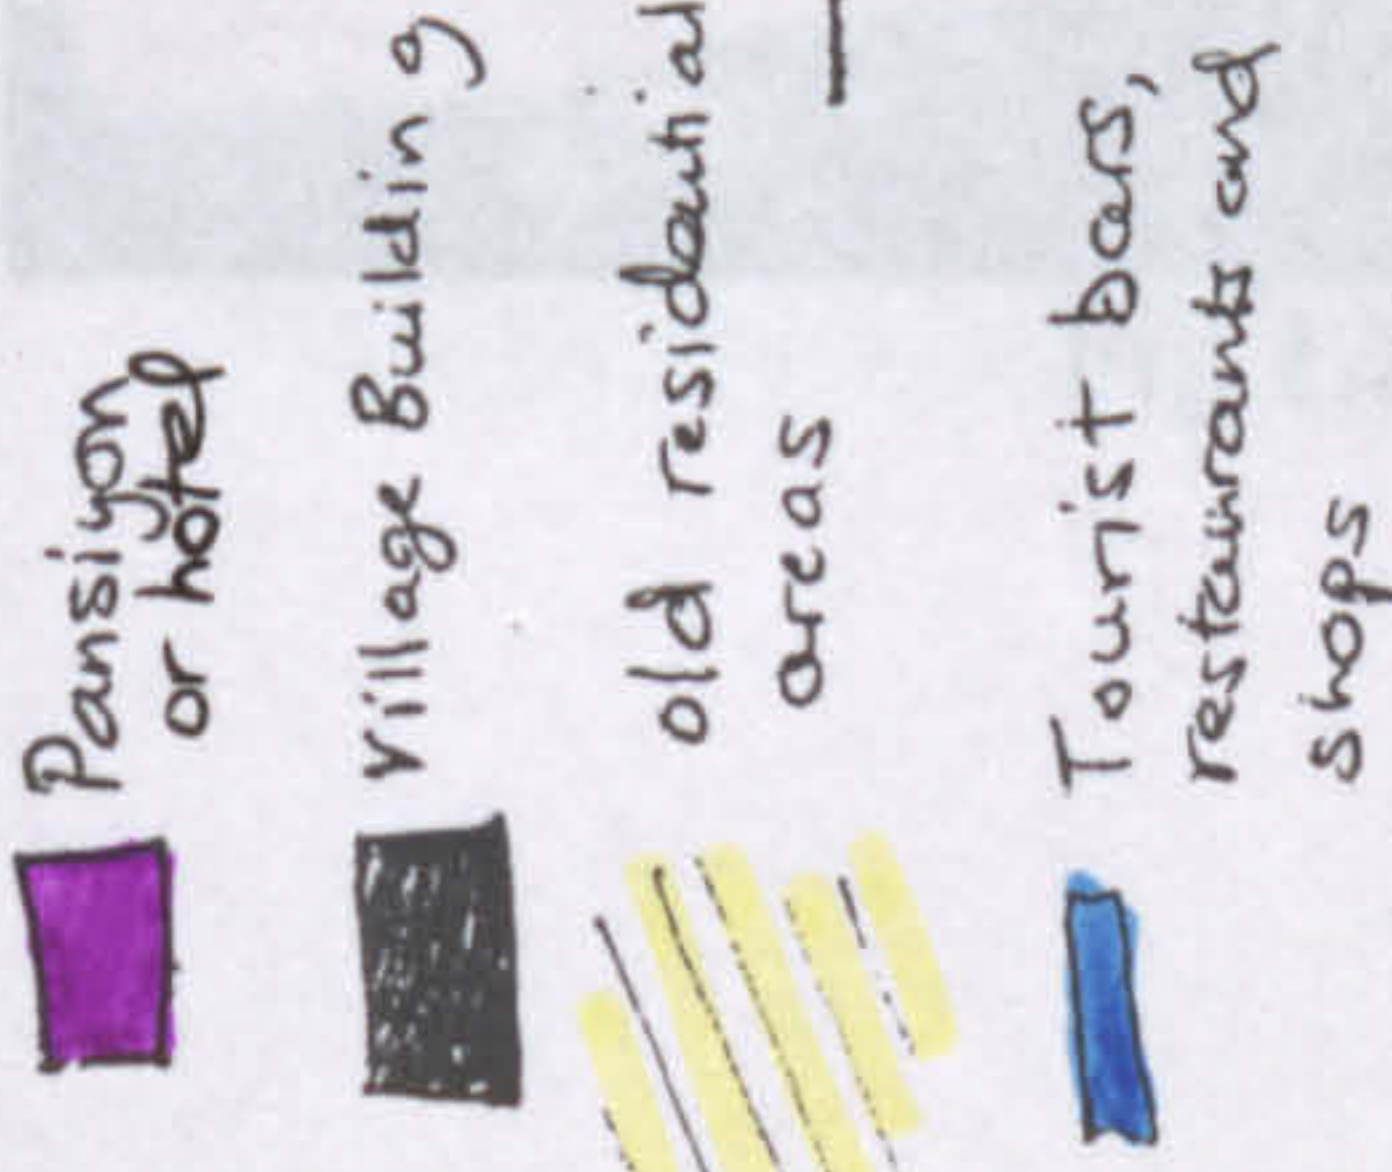 Pansiyon
or hotel
Village Building
old residential
areas
Tourist bars,
restaurants and
shops